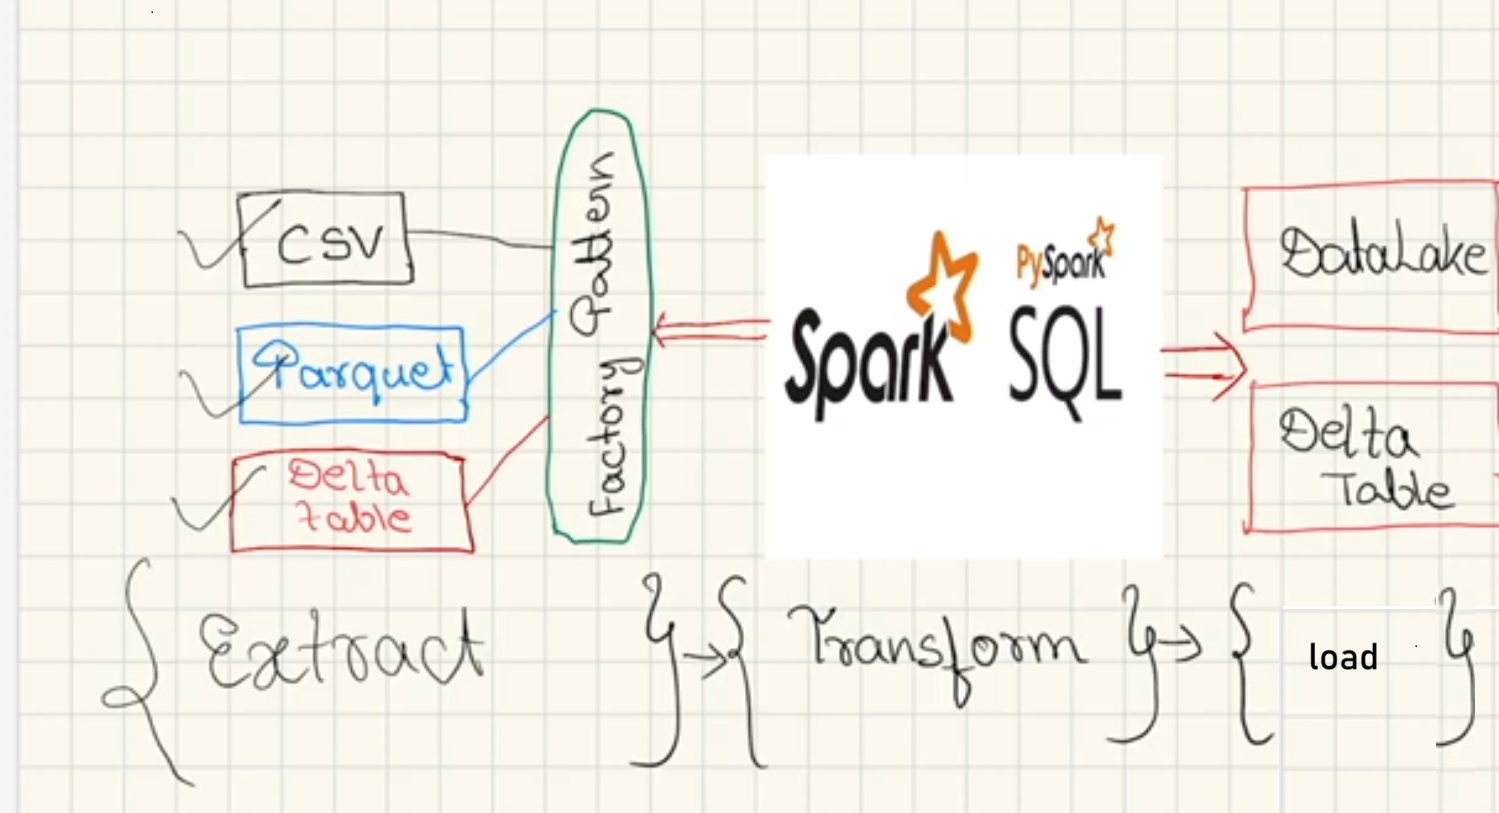 CSV
Parquet
Delta
table
Factory Pattern
Spark
PySpark
SQL
DataLake
Delta
Table
{ Extract } → { Transform } → { load }